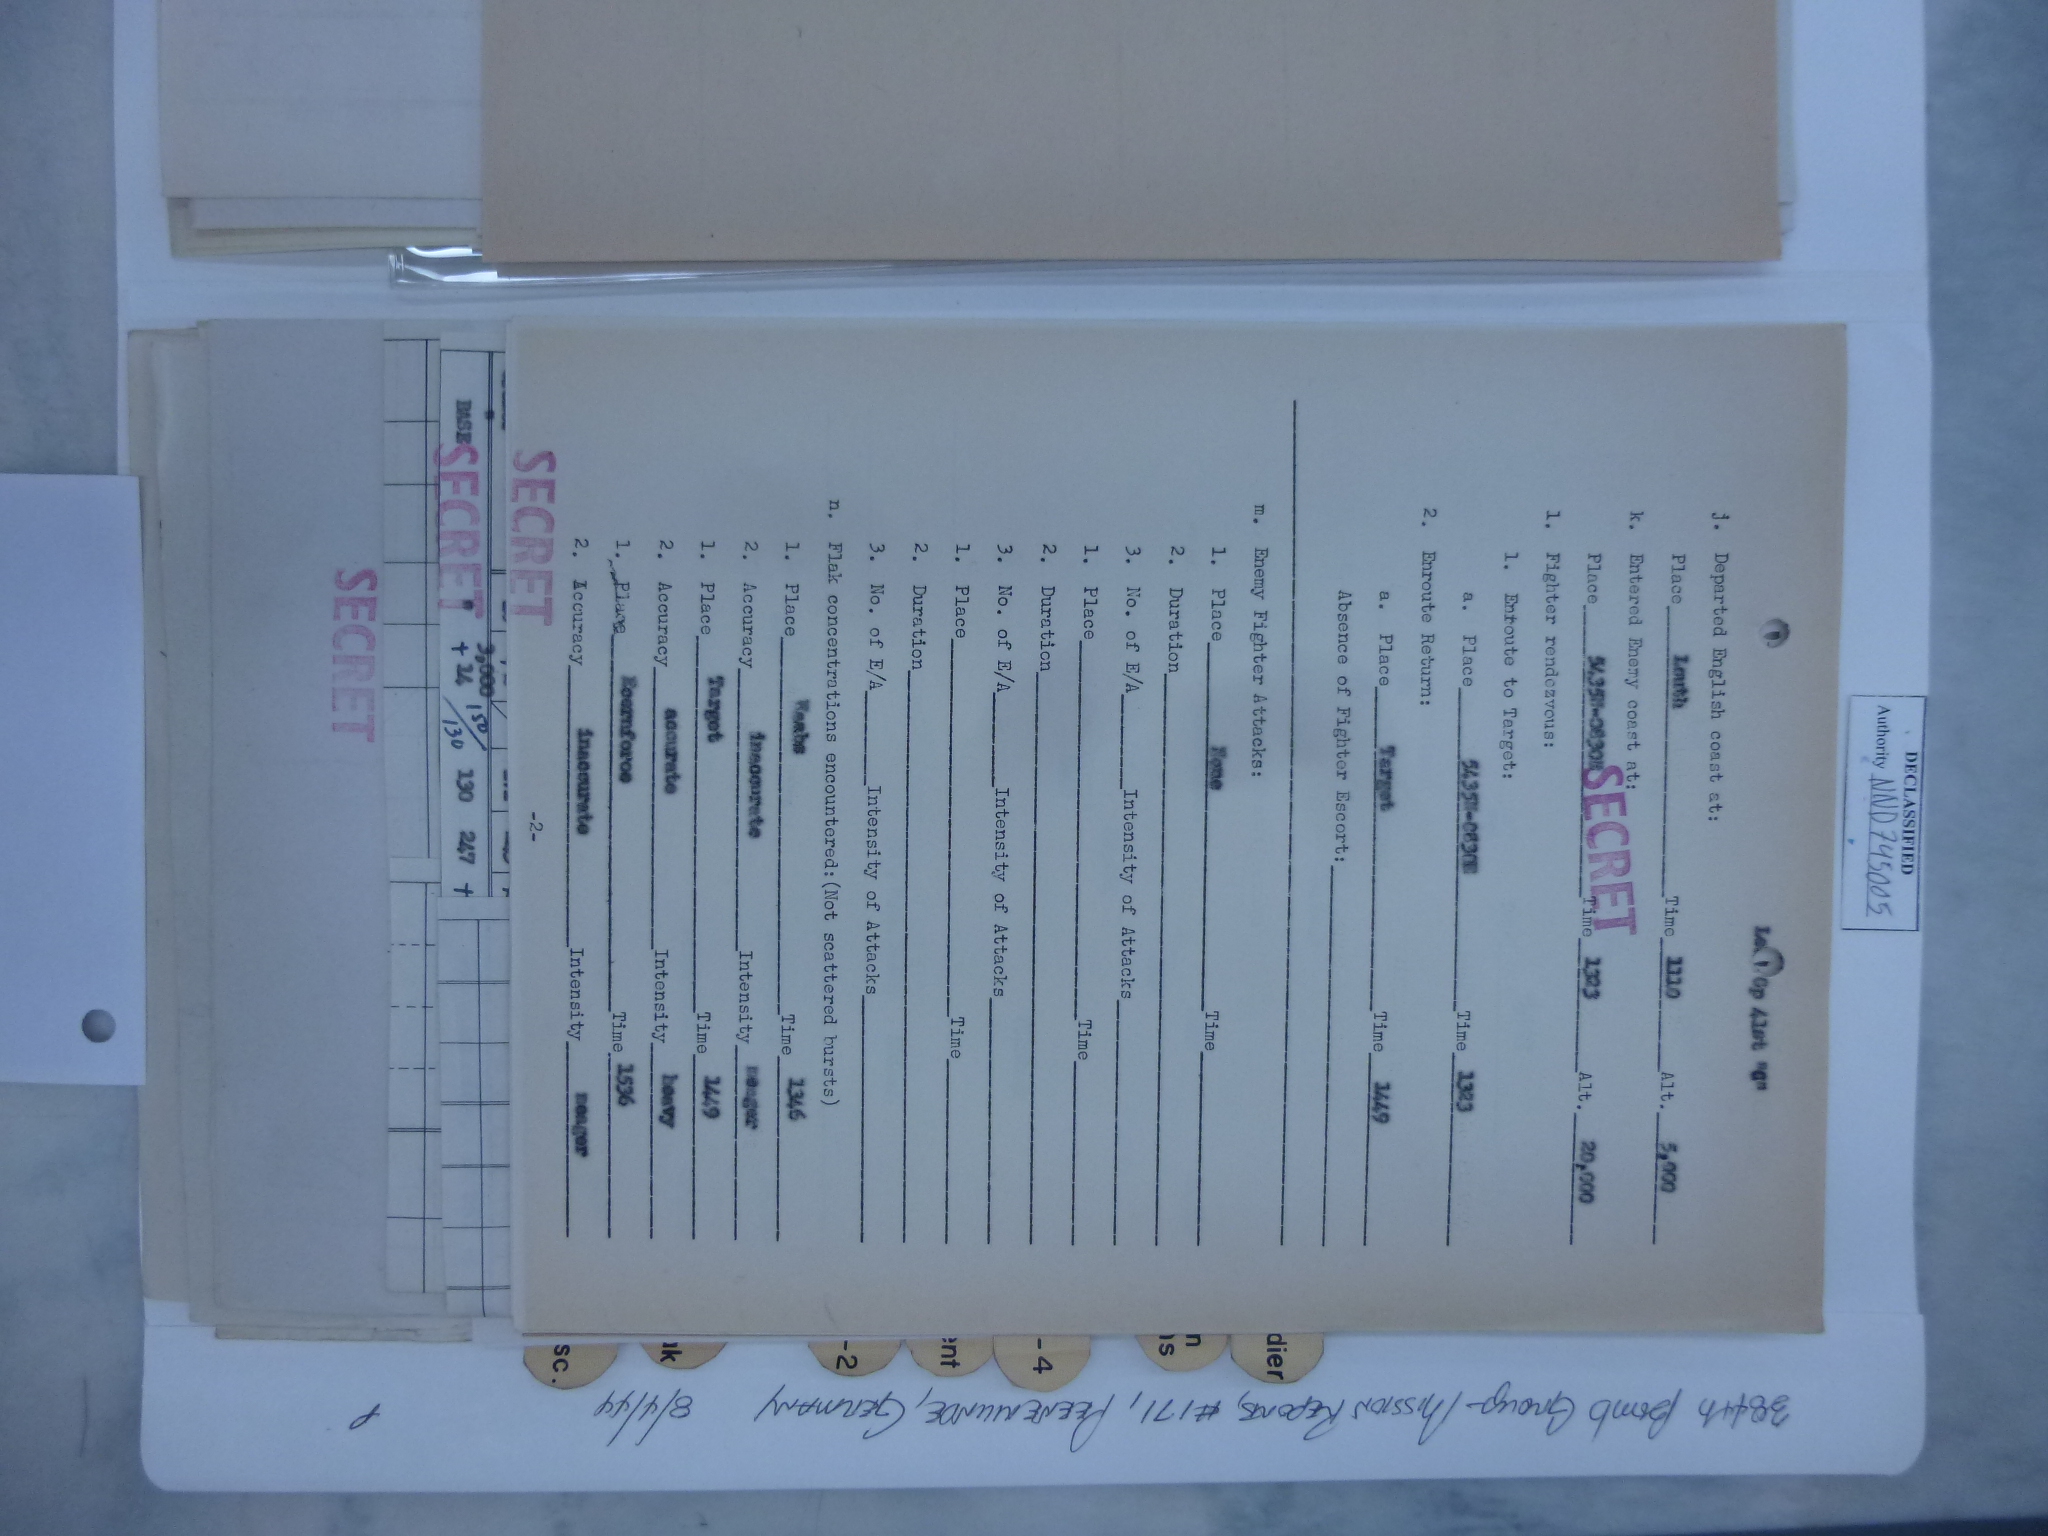 DECLASSIFIED
Authority NND 745005
Op Alet "G"
j. Departed English coast at:
Place Louth Time 1110 Alt. 5,000
k. Entered Enemy coast at:
SECRET
Place 5435N-0830E Time 1323 Alt. 20,000
l. Fighter rendezvous:
1. Enroute to Target:
a. Place 5435N-0830E Time 1323
2. Enroute Return:
a. Place Target Time 1449
Absence of Fighter Escort:
m. Enemy Fighter Attacks:
1. Place None Time
2. Duration
3. No. of E/A Intensity of Attacks
1. Place Time
2. Duration
3. No. of E/A Intensity of Attacks
1. Place Time
2. Duration
3. No. of E/A Intensity of Attacks
n. Flak concentrations encountered:(Not scattered bursts)
1. Place Time 1346
2. Accuracy inaccurate Intensity meager
1. Place Target Time 1449
2. Accuracy accurate Intensity heavy
1. Place Time 1536
2. Accuracy inaccurate Intensity meager
-2-
SECRET
3,000 150/
BASE SECRET " +24 /130 130 247 +
SECRET
dier
n
ns
-4
ent
-2
ak
sc.
384th Bomb Group-Mission Reports, #171, PEENEMUNDE, GERMANY 8/4/44